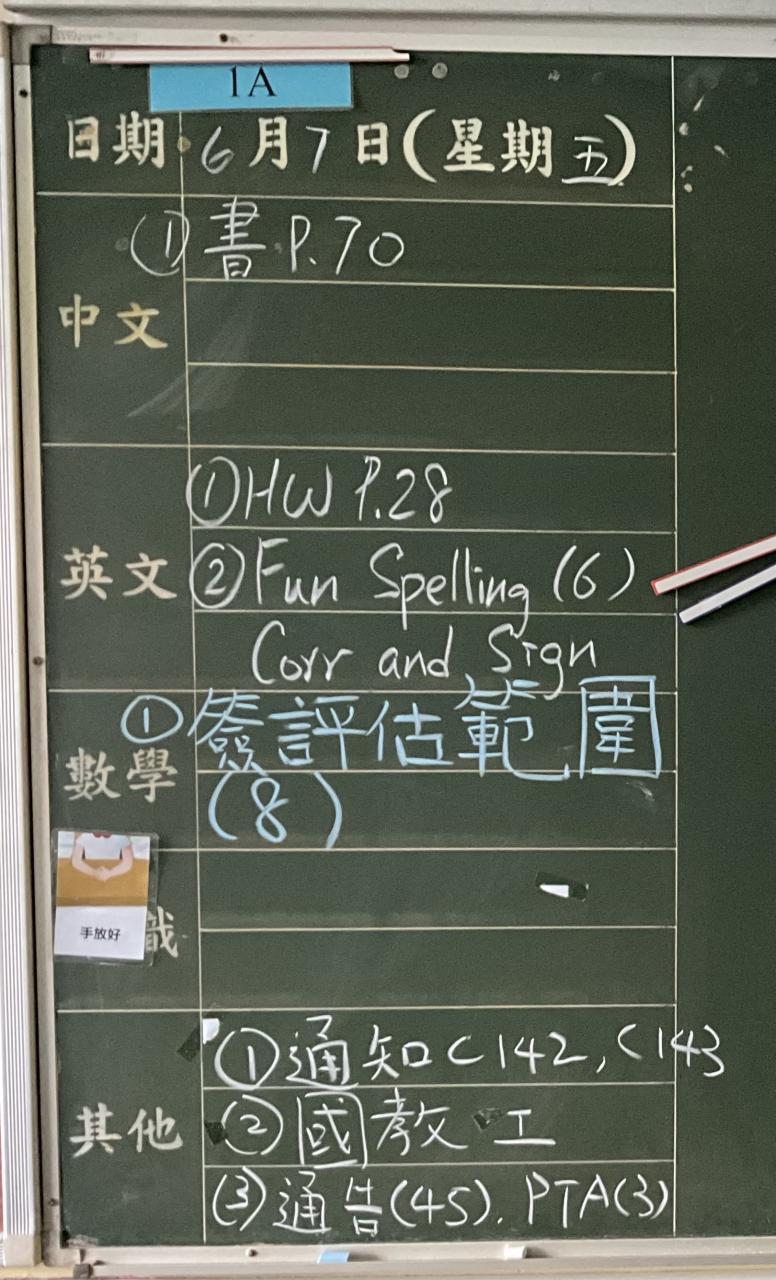 1A
日期 6月7日(星期五)
中文 ①書 P.70
英文 ①HW P.28
②Fun Spelling (6)
Corr and Sign
數學 ①簽評估範圍
(8)
手放好
識
其他 ①通知 C142, C143
②國教 工
③通告(45). PTA(3)